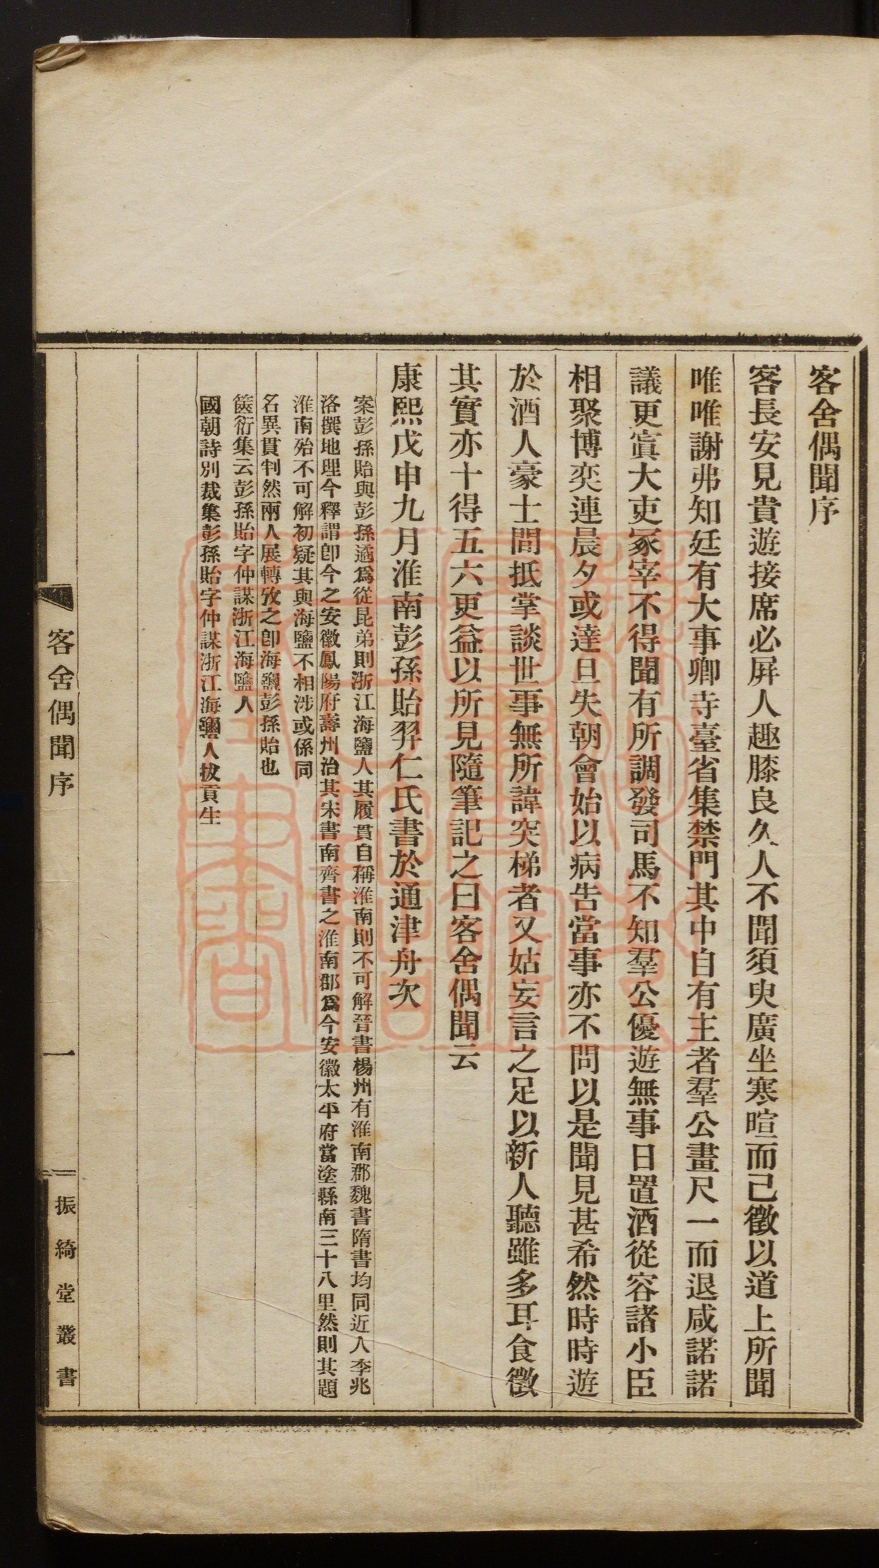 客舍偶聞序
客長安見貴遊接席必屛人趣膝良久人不聞須臾廣坐寒暄而已徵以道上所聞
唯唯謝弗知廷有大事卿寺臺省集禁門其中自有主者羣公畫尺一而退咸諾諾
議更寘大吏冢宰不得聞有所調發司馬不知羣公優遊無事日置酒從容諸小臣
相聚博奕連晨夕或達旦失朝會始以病告當事亦不問以是聞見甚希然時時遊
於酒人豪士間抵掌談世事無所諱突梯者又姑妄言之足以新人聽雖多耳食徵
其實亦十得五六更益以所見隨筆記之曰客舍偶聞云
康熙戊申九月淮南彭孫貽羿仁氏書於通津舟次
案彭孫貽與彭孫遹爲從昆弟則浙江海鹽人其履貫自稱淮南則不可解晉書楊州有淮南郡魏書隋書均同近人李兆
洛撰地理今釋謂卽今之安徽鳳陽府壽州治其宋書南齊書之淮南郡爲今安徽太平府當塗縣南三十八里然則其題
淮南殆不可解初疑其與海鹽不相涉或係同
名異貫判然兩人展轉攷之卽海鹽彭孫貽也
篋衍集云彭孫貽字仲謀浙江海鹽人
國朝詩別裁集彭孫貽字仲謀浙江海鹽人拔貢生
客舍偶聞序
一
振綺堂叢書